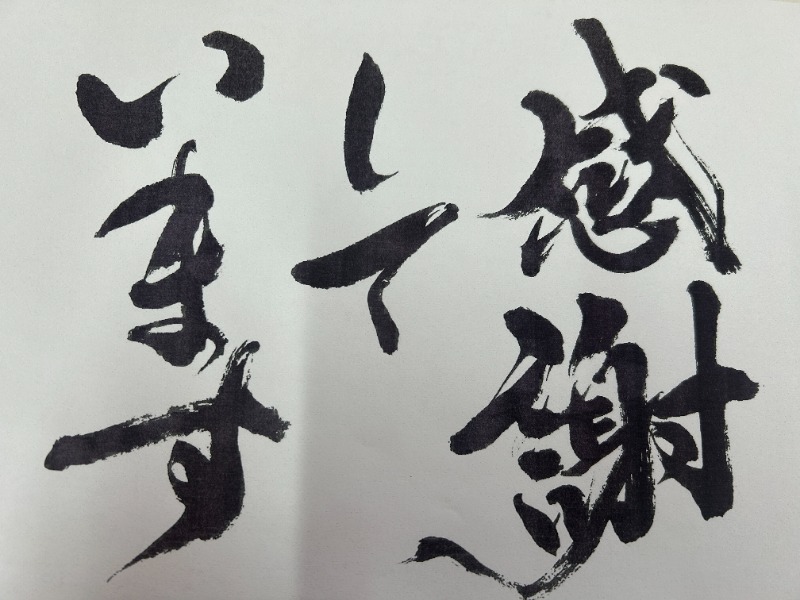 感謝
して
います